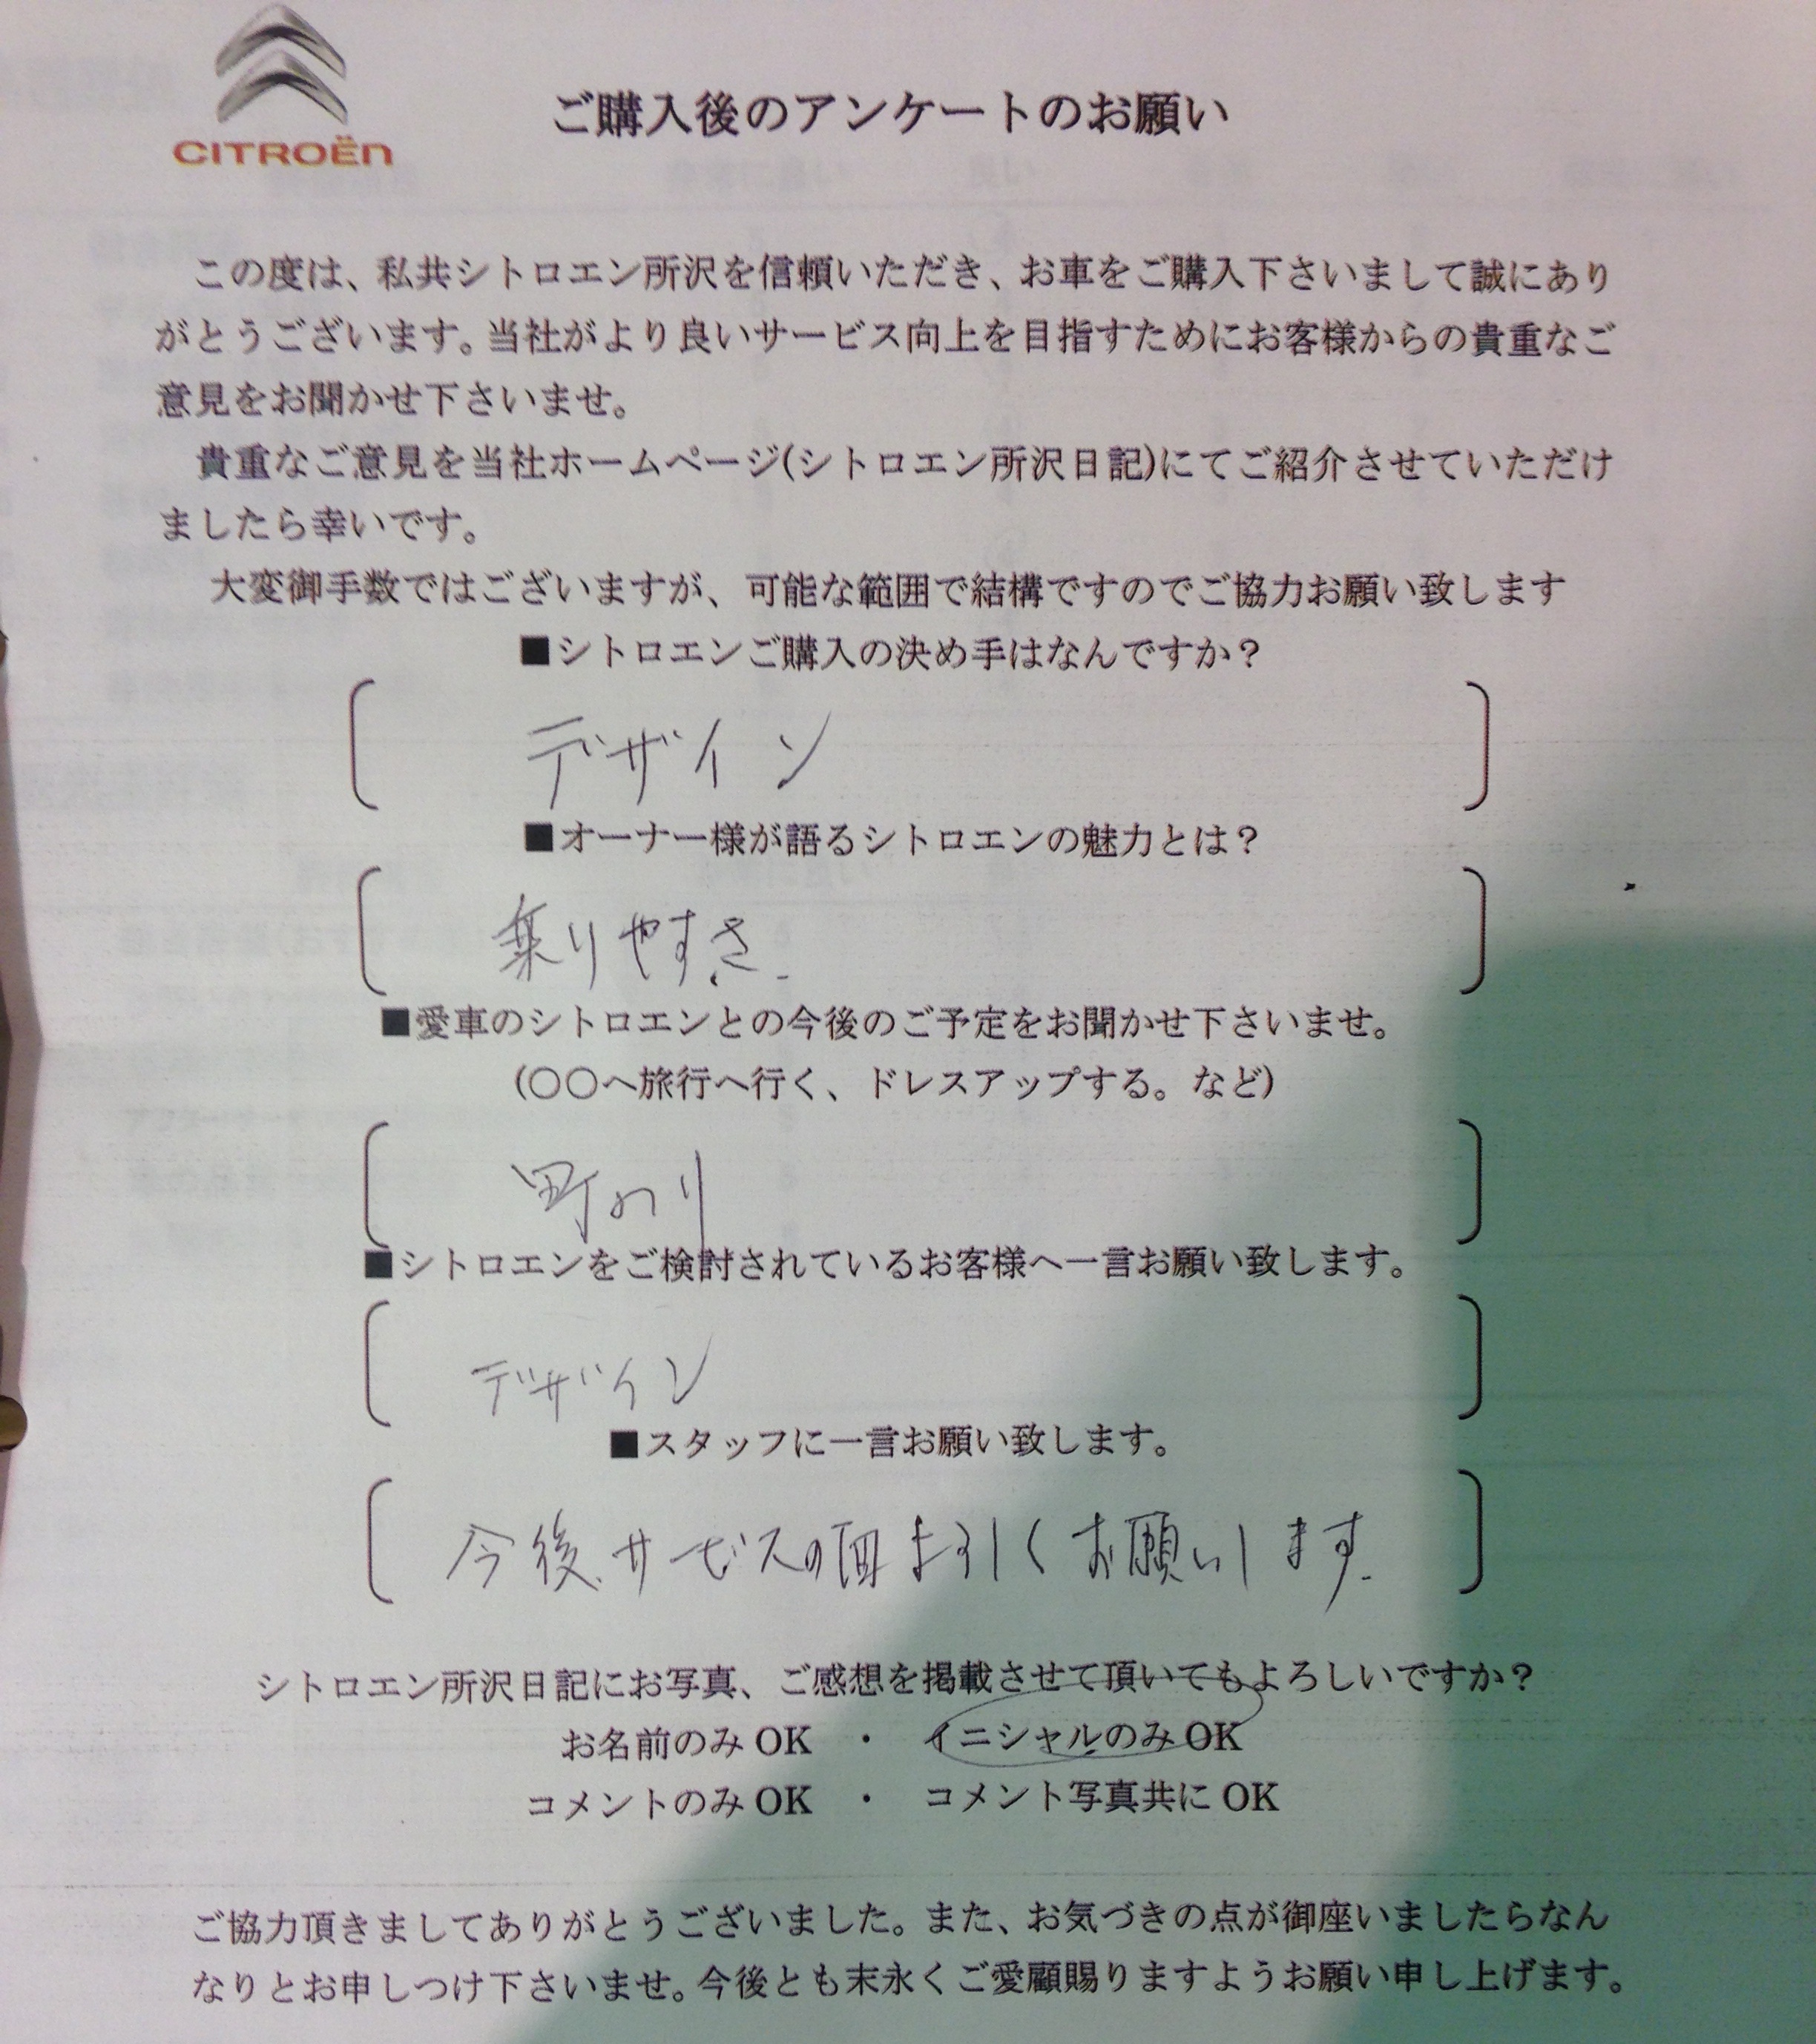 CITROËN
ご購入後のアンケートのお願い
この度は、私共シトロエン所沢を信頼いただき、お車をご購入下さいまして誠にあり
がとうございます。当社がより良いサービス向上を目指すためにお客様からの貴重なご
意見をお聞かせ下さいませ。
貴重なご意見を当社ホームページ(シトロエン所沢日記)にてご紹介させていただけ
ましたら幸いです。
大変御手数ではございますが、可能な範囲で結構ですのでご協力お願い致します
■シトロエンご購入の決め手はなんですか？
デザイン
■オーナー様が語るシトロエンの魅力とは？
乗りやすさ
■愛車のシトロエンとの今後のご予定をお聞かせ下さいませ。
(〇〇へ旅行へ行く、ドレスアップする。など)
町のり
■シトロエンをご検討されているお客様へ一言お願い致します。
デザイン
■スタッフに一言お願い致します。
今後、サービスの面 お願いします.
シトロエン所沢日記にお写真、ご感想を掲載させて頂いてもよろしいですか？
お名前のみ OK ・ イニシャルのみ OK
コメントのみ OK ・ コメント写真共に OK
ご協力頂きましてありがとうございました。また、お気づきの点が御座いましたらなん
なりとお申しつけ下さいませ。今後とも末永くご愛顧賜りますようお願い申し上げます。